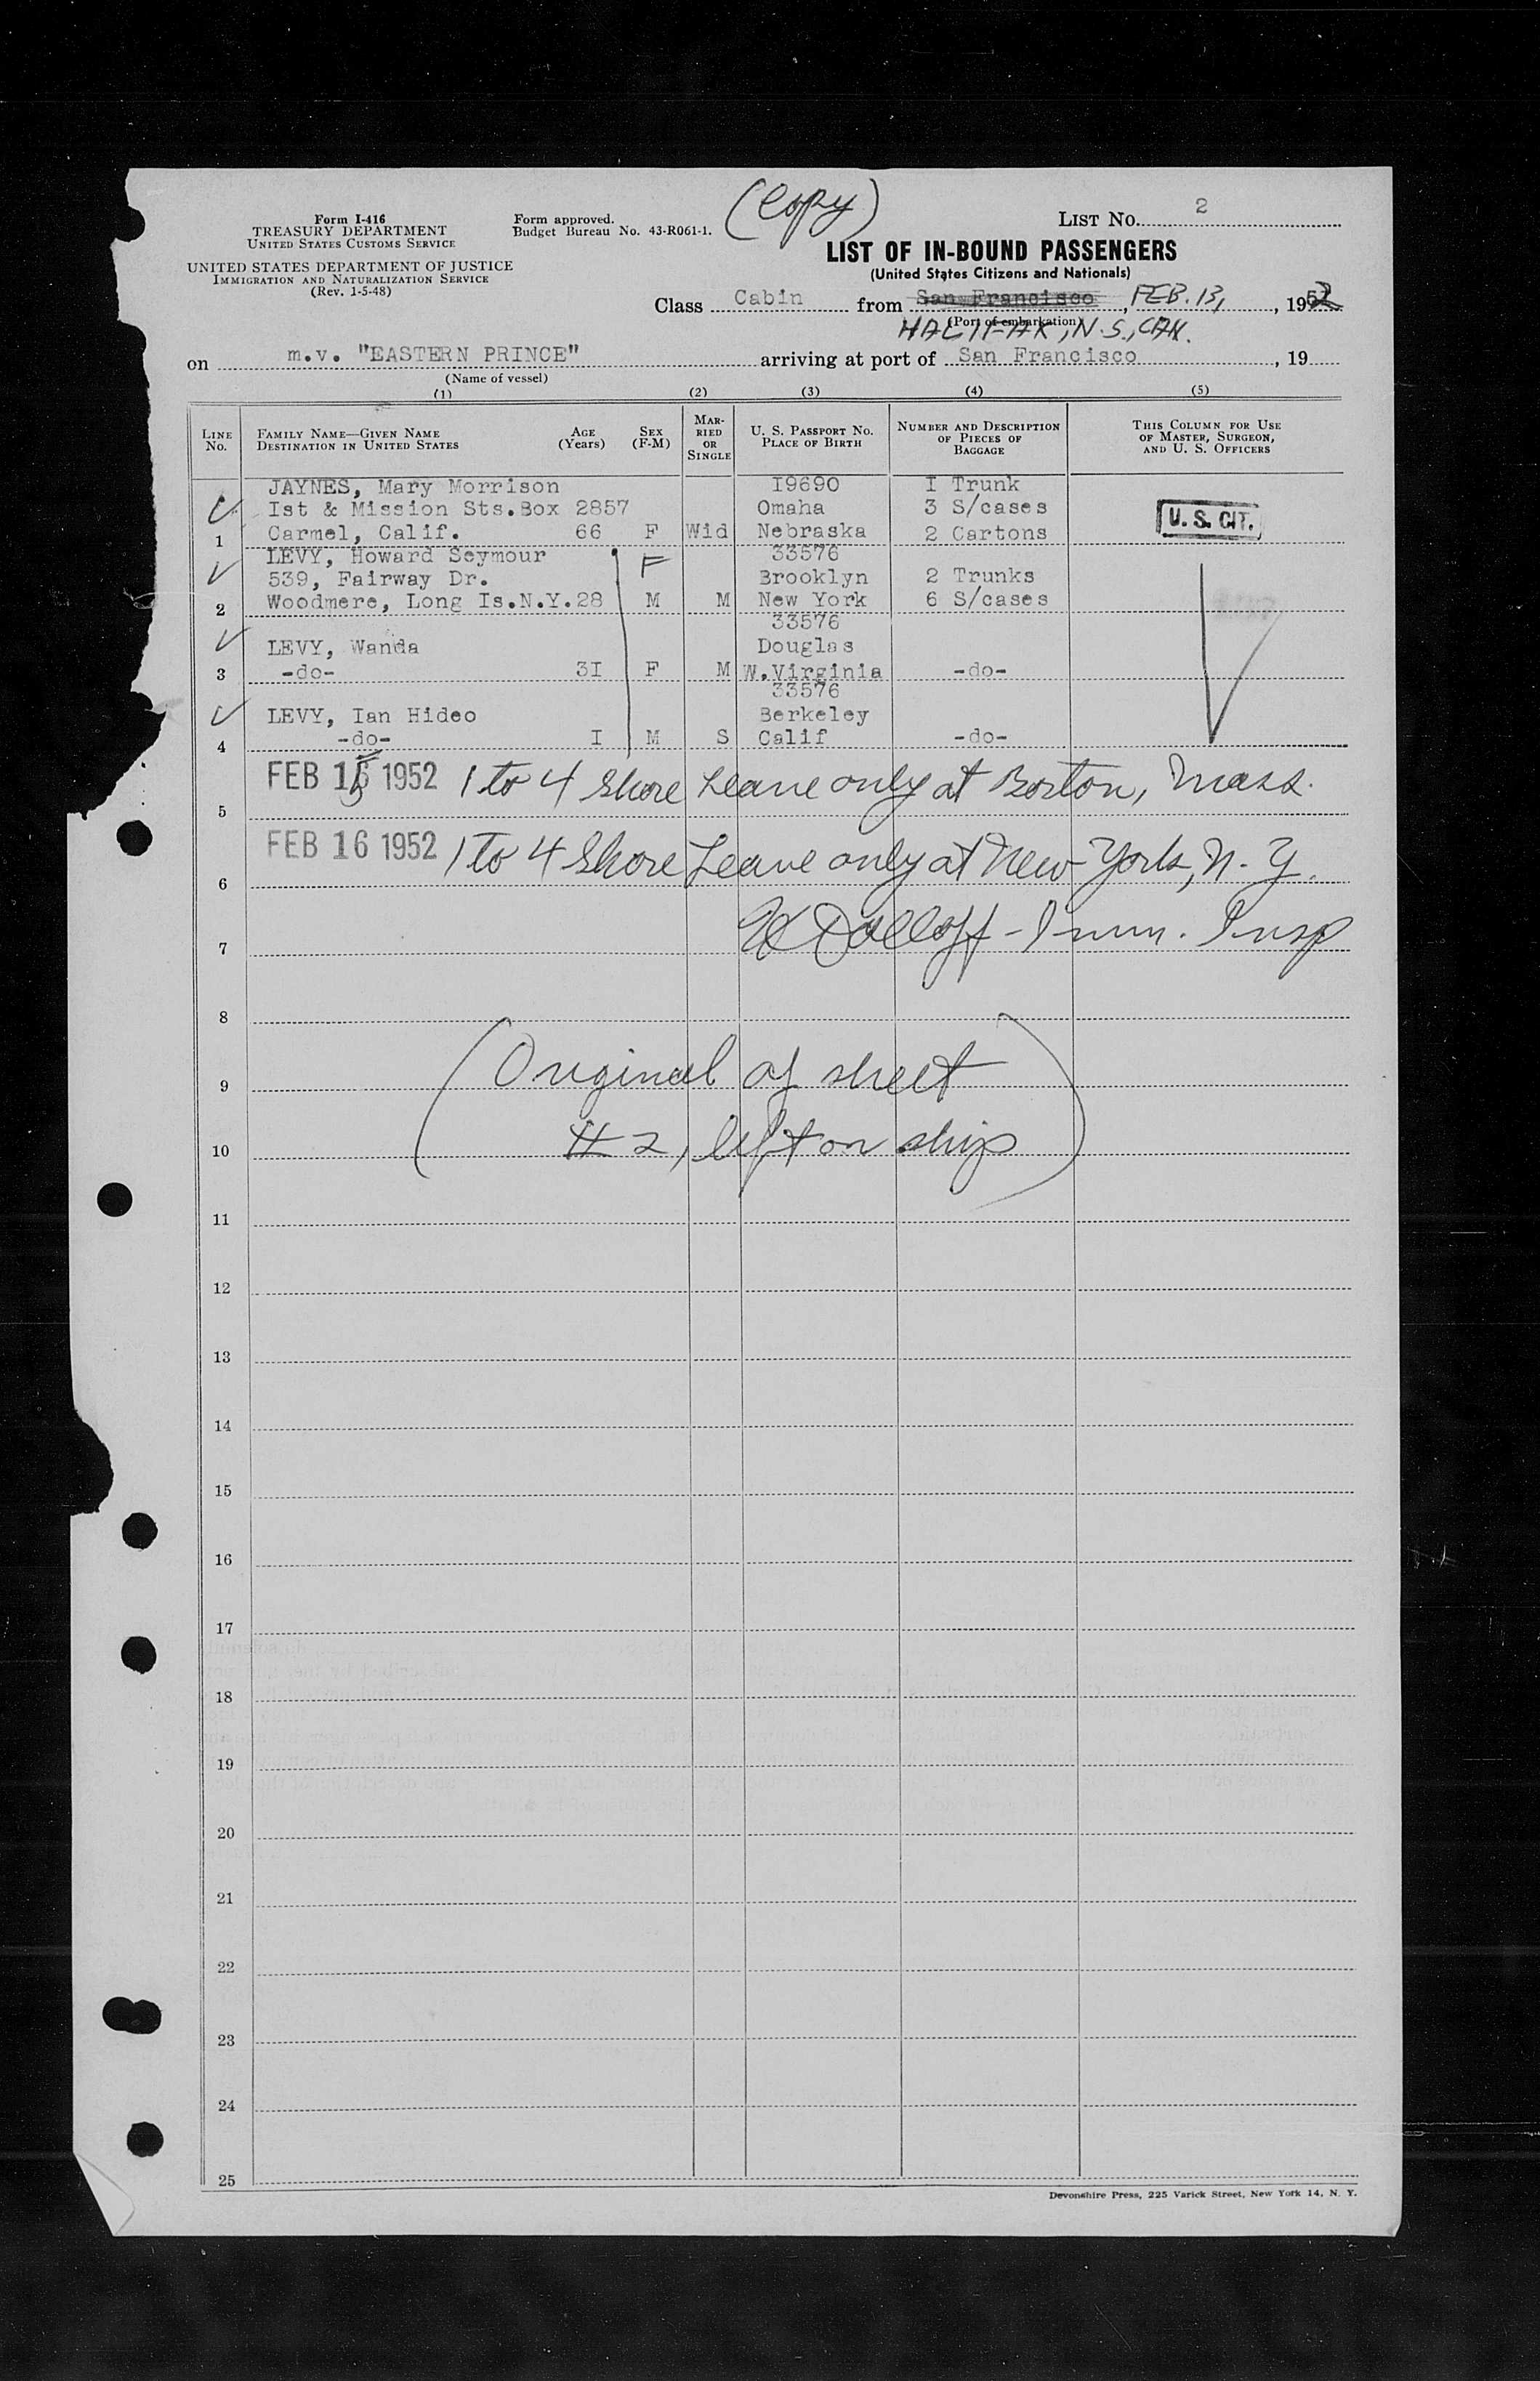 (Copy)
Form I-416
TREASURY DEPARTMENT
UNITED STATES CUSTOMS SERVICE
UNITED STATES DEPARTMENT OF JUSTICE
IMMIGRATION AND NATURALIZATION SERVICE
(Rev. 1-5-48)
Form approved.
Budget Bureau No. 43-R061-1.
LIST NO. 2
LIST OF IN-BOUND PASSENGERS
(United States Citizens and Nationals)
Class Cabin from San Francisco, FEB. 13, 1952
(Port of embarkation)
HALIFAX, N.S., CAN.
on m.v. "EASTERN PRINCE" arriving at port of San Francisco, 19
(Name of vessel)
(1) (2) (3) (4) (5)
LINE No.
FAMILY NAME—GIVEN NAME
DESTINATION IN UNITED STATES
AGE (Years)
SEX (F-M)
MARRIED OR SINGLE
U. S. PASSPORT NO.
PLACE OF BIRTH
NUMBER AND DESCRIPTION OF PIECES OF BAGGAGE
THIS COLUMN FOR USE OF MASTER, SURGEON, AND U. S. OFFICERS
JAYNES, Mary Morrison I9690 I Trunk
Ist & Mission Sts.Box 2857 Omaha 3 S/cases U. S. CIT.
1 Carmel, Calif. 66 F Wid Nebraska 2 Cartons
LEVY, Howard Seymour F 33576
539, Fairway Dr. Brooklyn 2 Trunks
2 Woodmere, Long Is.N.Y.28 M M New York 6 S/cases
33576
LEVY, Wanda Douglas
3 -do- 3I F M W.Virginia -do-
33576
LEVY, Ian Hideo Berkeley
4 -do- I M S Calif -do-
FEB 15 1952 1 to 4 Shore Leave only at Boston, Mass.
5
FEB 16 1952 1 to 4 Shore Leave only at New York, N. Y.
6
Dolloff - Imm. Insp
7
8
(Original of sheet
9
#2, left on ship)
10
11
12
13
14
15
16
17
18
19
20
21
22
23
24
25
Devonshire Press, 225 Varick Street, New York 14, N. Y.